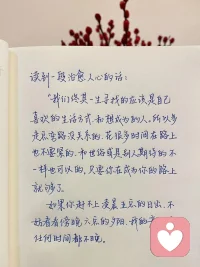 读到一段治愈人心的话：
“我们终其一生寻找的应该是自己
喜欢的生活方式和想成为的人，所以多
走点弯路没关系的，花很多时间在路上
也不要紧的，和世俗或是别人期待的不一
样也可以的，只要你在成为你的路上
就够了。
如果你赶不上凌晨五点的日出，不
妨看看傍晚六点的夕阳，我的意
任何时间都不晚。